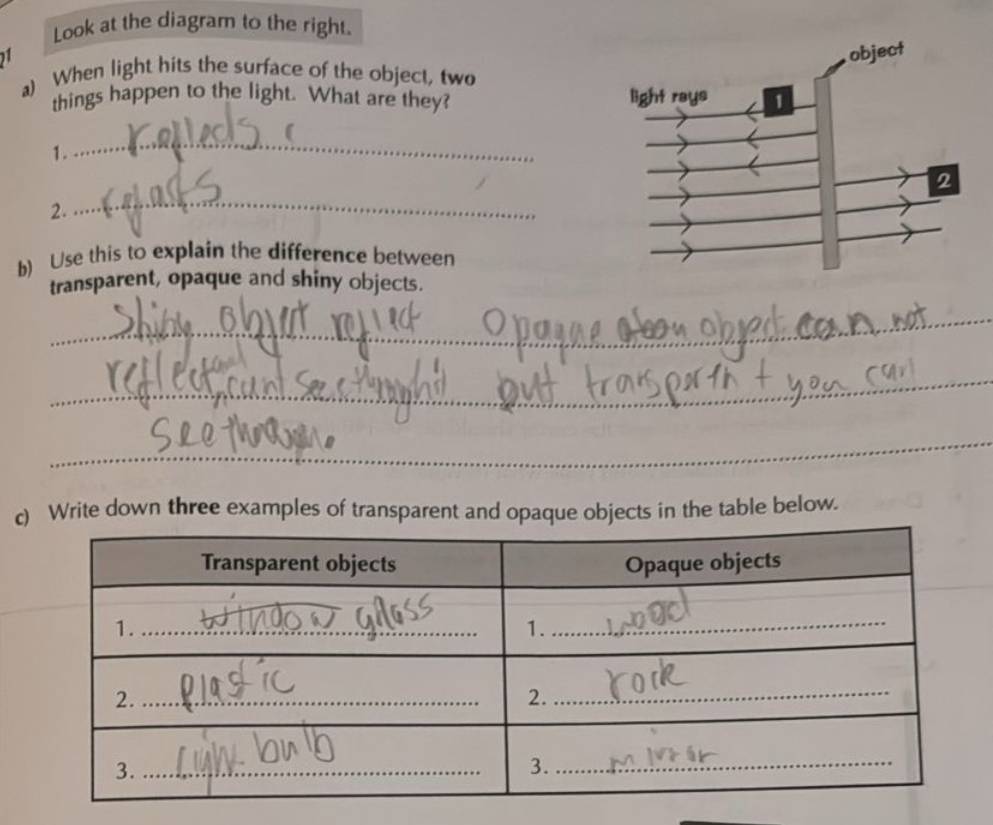 Look at the diagram to the right.
21
a) When light hits the surface of the object, two
things happen to the light. What are they?
1. reflects
2.
object
light rays
1
2
b) Use this to explain the difference between
transparent, opaque and shiny objects.
Shiny object reflect Opaque object can not
reflect, cant see but you can
see
c) Write down three examples of transparent and opaque objects in the table below.
Transparent objects Opaque objects
1. window glass 1. wood
2. plastic 2. rock
3. light bulb 3. mirror